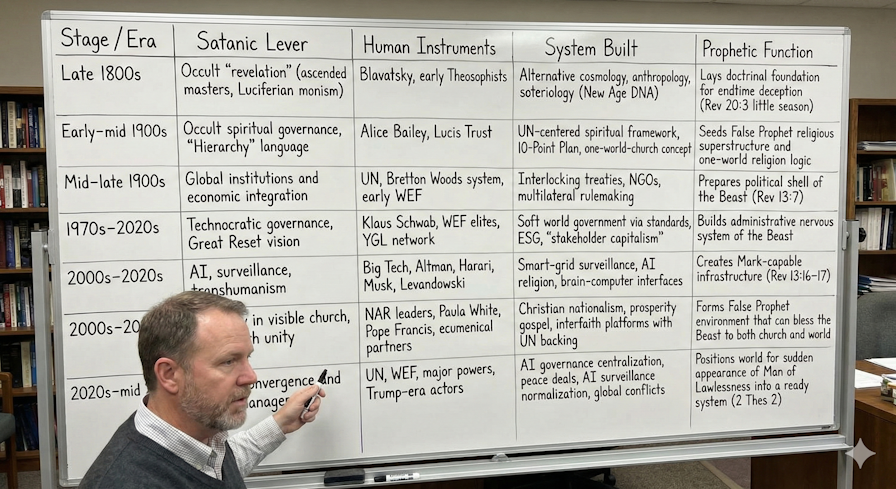 Stage/Era
Satanic Lever
Human Instruments
System Built
Prophetic Function
Late 1800s
Occult "revelation" (ascended
masters, Luciferian monism)
Blavatsky, early Theosophists
Alternative cosmology, anthropology,
soteriology (New Age DNA)
Lays doctrinal foundation
for endtime deception
(Rev 20:3 little season)
Early-mid 1900s
Occult spiritual governance,
"Hierarchy" language
Alice Bailey, Lucis Trust
UN-centered spiritual framework,
10-Point Plan, one-world-church concept
Seeds False Prophet religious
superstructure and
one-world religion logic
Mid-late 1900s
Global institutions and
economic integration
UN, Bretton Woods system,
early WEF
Interlocking treaties, NGOs,
multilateral rulemaking
Prepares political shell of
the Beast (Rev 13:7)
1970s-2020s
Technocratic governance,
Great Reset vision
Klaus Schwab, WEF elites,
YGL network
Soft world government via standards,
ESG, "stakeholder capitalism"
Builds administrative nervous
system of the Beast
2000s-2020s
AI, surveillance,
transhumanism
Big Tech, Altman, Harari,
Musk, Levandowski
Smart-grid surveillance, AI
religion, brain-computer interfaces
Creates Mark-capable
infrastructure (Rev 13:16-17)
2000s-20
in visible church,
unity
NAR leaders, Paula White,
Pope Francis, ecumenical
partners
Christian nationalism, prosperity
gospel, interfaith platforms with
UN backing
Forms False Prophet
environment that can bless the
Beast to both church and world
2020s-mid
and
UN, WEF, major powers,
Trump-era actors
AI governance centralization,
peace deals, AI surveillance
normalization, global conflicts
Positions world for sudden
appearance of Man of
Lawlessness into a ready
system (2 Thes 2)